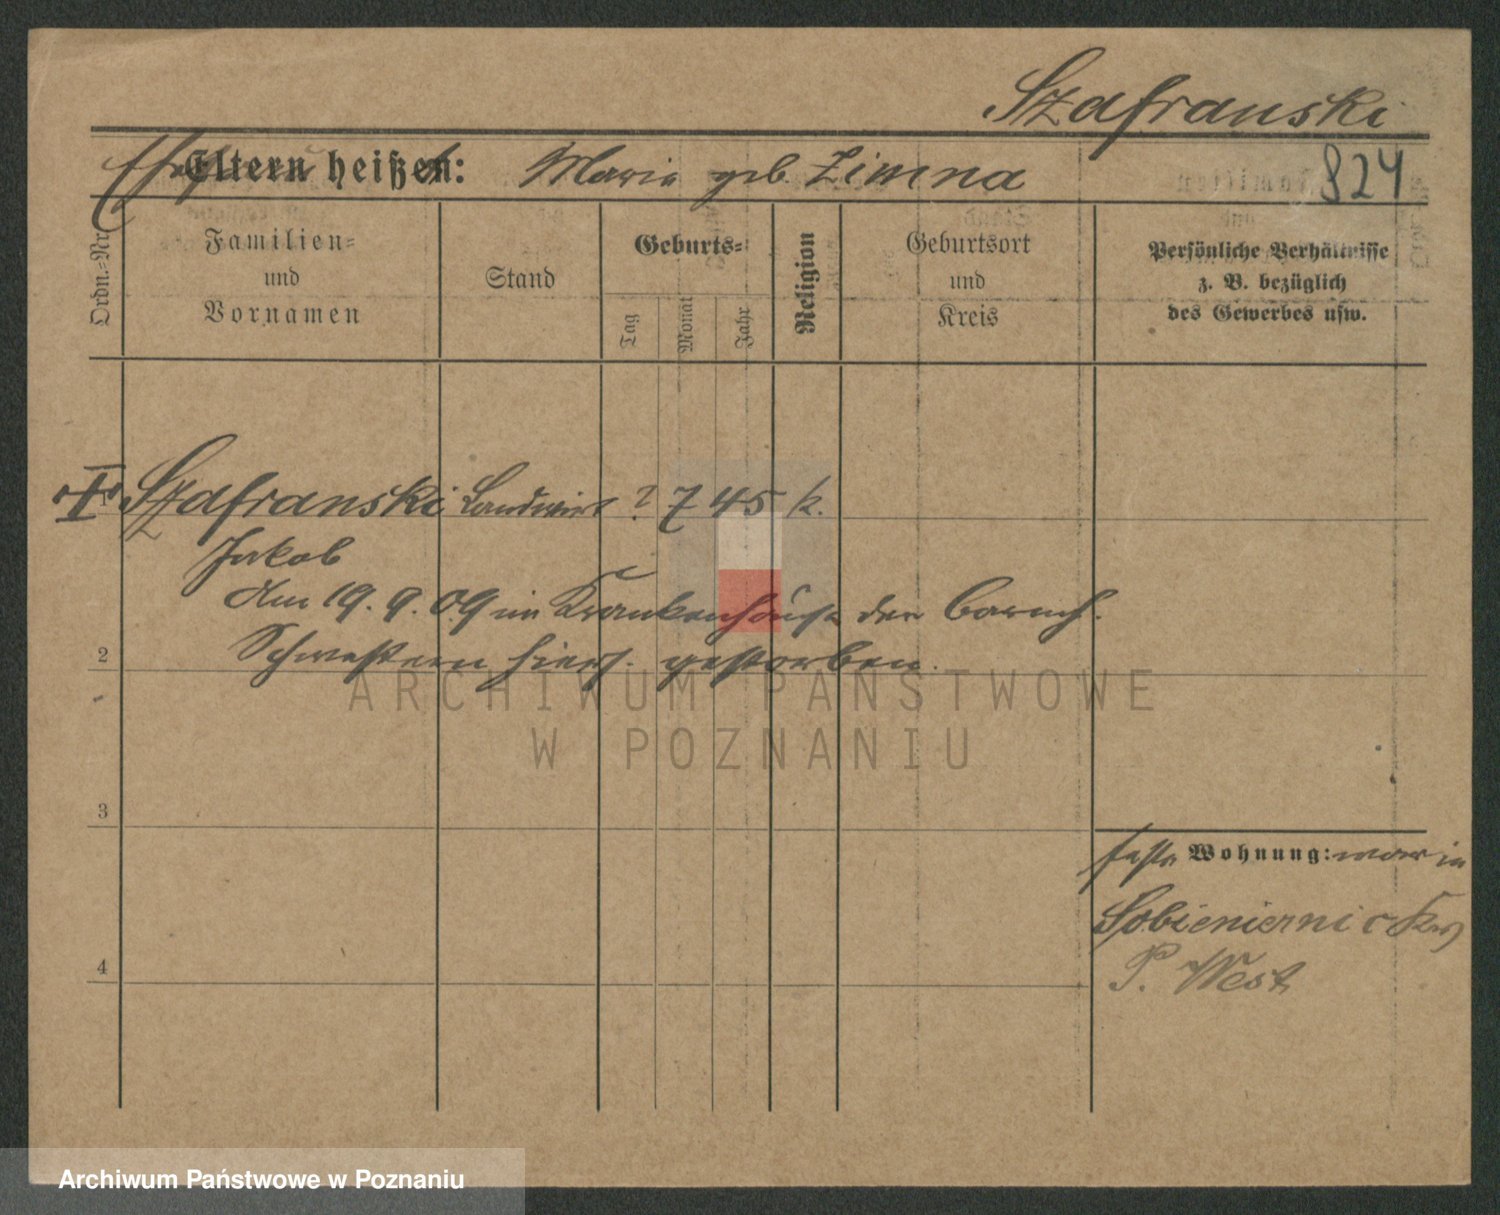 Szafranski
Eltern heißen: Marie geb. Zimna
824
Ordn.-Nr.
Familien-
und
Vornamen
Stand
Geburts-
Tag
Monat
Jahr
Religion
Geburtsort
und
Kreis
Persönliche Verhältnisse
z. B. bezüglich
des Gewerbes usw.
1 Szafranski Landwirt ? 7 45 k.
Jakob
Am 19. 9. 09 im Krankenhause der barmh.
Schwestern hiers. gestorben.
2
3
4
feste Wohnung: war in
P. West
ARCHIWUM PAŃSTWOWE
W POZNANIU
Archiwum Państwowe w Poznaniu